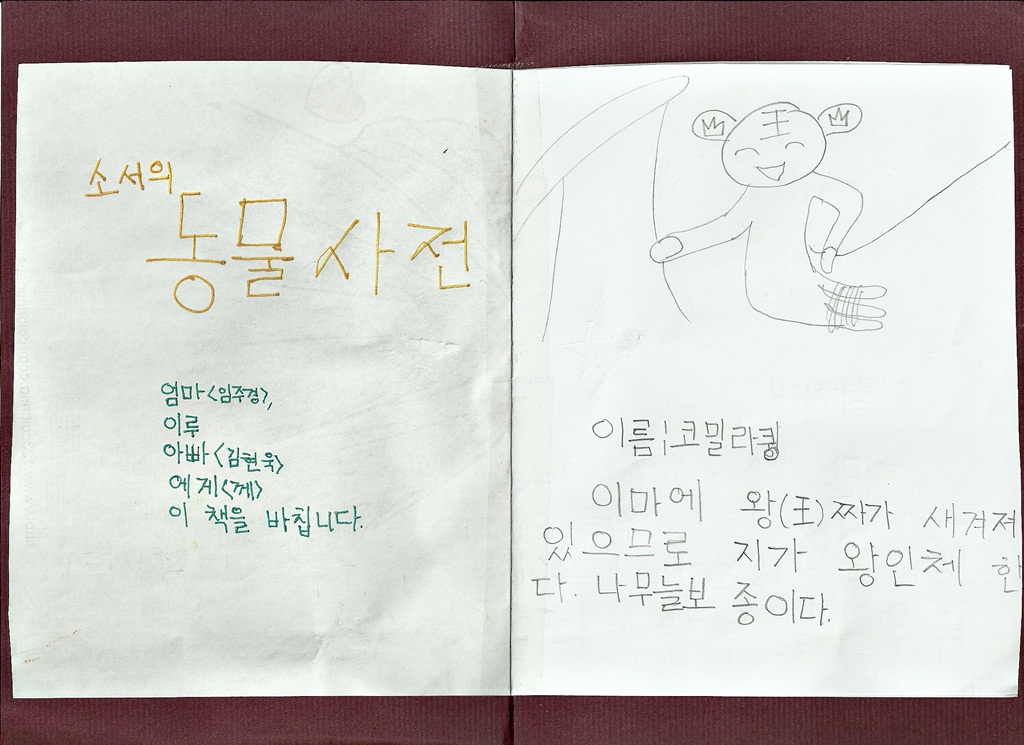 소서의
동물 사전
엄마<임주경>,
이루
아빠<김현욱>
에게<께>
이 책을 바칩니다.
王
이름; 코밀라쿵
이마에 왕(王)짜가 새겨져
있으므로 지가 왕인체 한
다. 나무늘보 종이다.